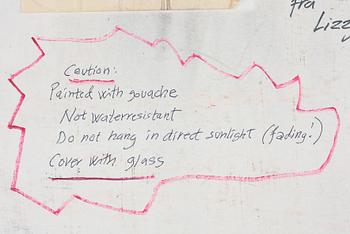 fra
Lizzy
Caution:
Painted with gouache
Not waterresistant
Do not hang in direct sunlight (fading!)
Cover with glass